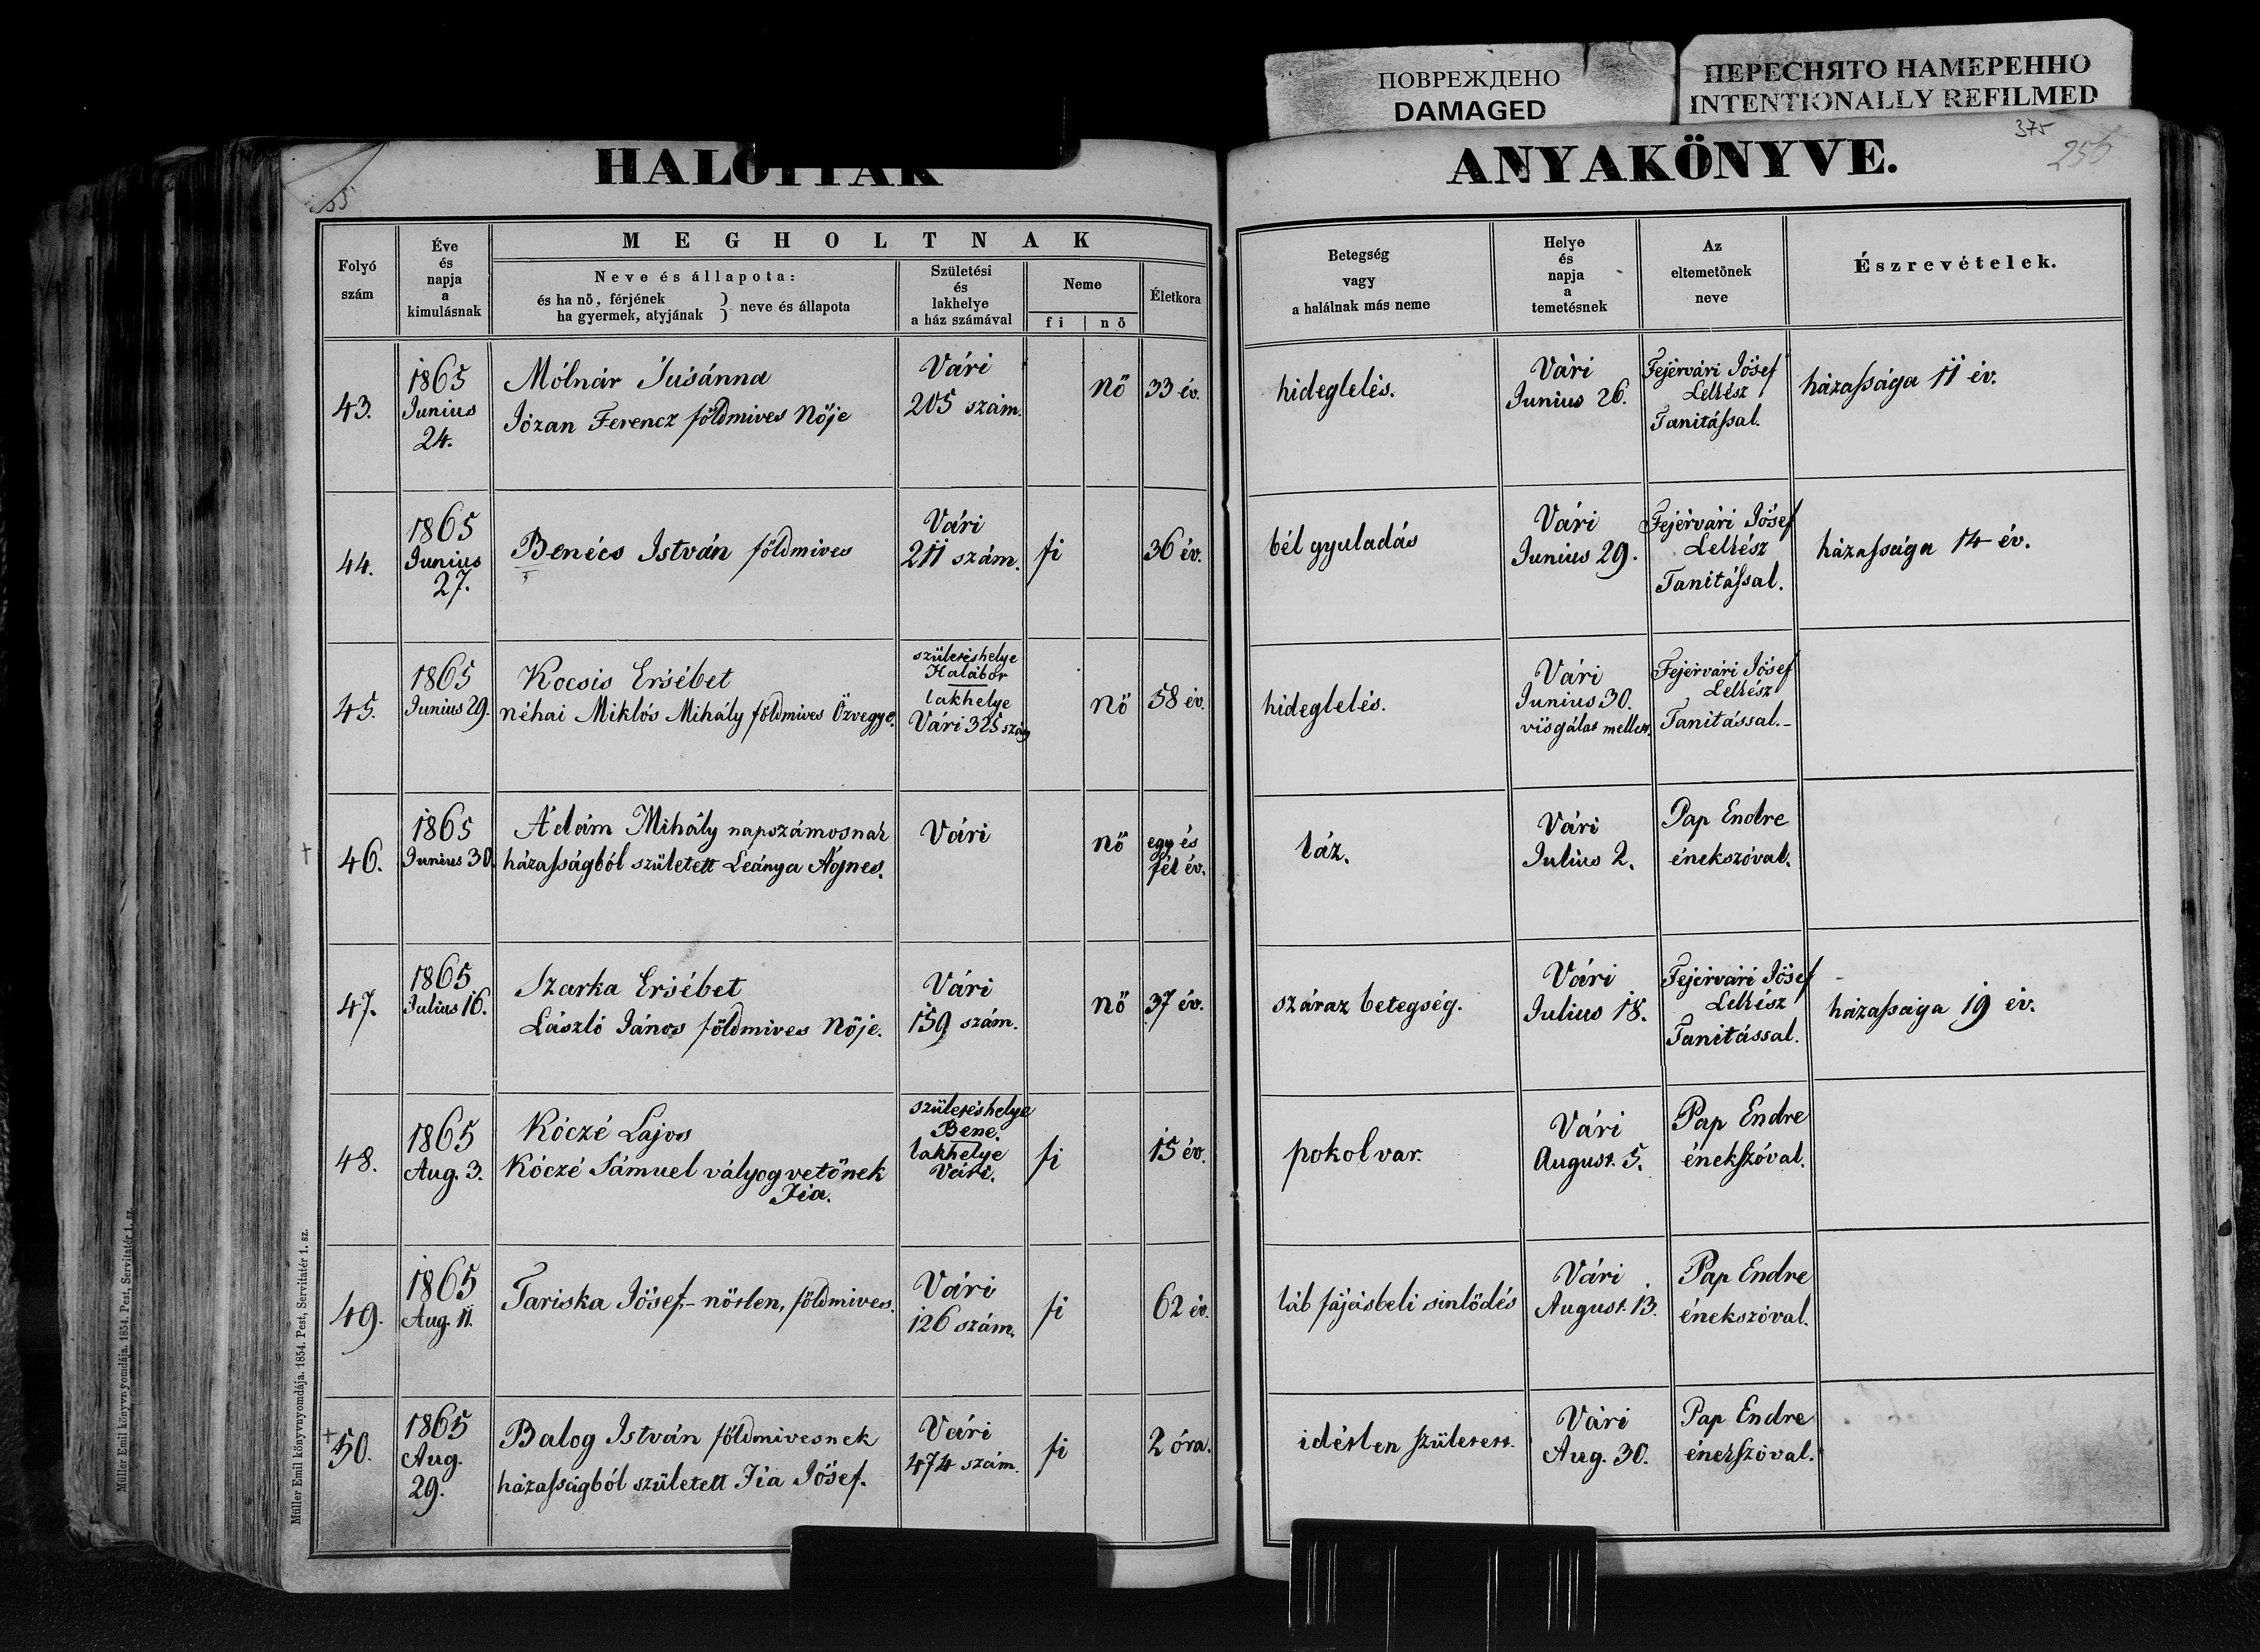 ПОВРЕЖДЕНО
DAMAGED
ПЕРЕСНЯТО НАМЕРЕННО
INTENTIONALLY REFILMED
375
HALOTTAK
ANYAKÖNYVE.
Folyó
szám
Éve
és
napja
a
kimulásnak
MEGHOLTNAK
Neve és állapota:
és ha nő, férjének
ha gyermek, atyjának } neve és állapota
Születési
és
lakhelye
a ház számával
Neme
fi | nő
Életkora
Betegség
vagy
a halálnak más neme
Helye
és
napja
a
temetésnek
Az
eltemetőnek
neve
Észrevételek.
43.
1865
Junius
24.
Mólnár Susánna
Józan Ferencz földmives Nője
Vári
205 szám.
nő
33 év.
hideglelés.
Vári
Junius 26.
Fejérvári Jósef
Lelkész
Tanitással.
házassága 11 év.
44.
1865
Junius
27.
Benécs István földmives
Vári
211 szám.
fi
36 év.
bél gyuladás
Vári
Junius 29.
Fejérvári Jósef
Lelkész
Tanitással.
házassága 14 év.
45.
1865
Junius 29.
Kocsis Ersébet
néhai Miklós Mihály földmives Özvegye.
születéshelye
Halábor
lakhelye
Vári 325 szám
nő
58 év.
hideglelés.
Vári
Junius 30.
visgálat mellett.
Fejérvári Jósef
Lelkész
Tanitással.-
46.
1865
Junius 30.
Ádám Mihály napszámosnak
házasságból született Leánya Ágnes.
Vári
nő
egy és
fél év.
láz.
Vári
Julius 2.
Pap Endre
énekszóval.
47.
1865
Julius 16.
Szarka Ersébet
László János földmives Nője.
Vári
159 szám.
nő
37 év.
száraz betegség.
Vári
Julius 18.
Fejérvári Jósef
Lelkész
Tanitással.
házassága 19 év.
48.
1865
Aug. 3.
Kóczé Lajos
Kóczé Sámuel vályogvetőnek
Fia.
születéshelye
Bene.
lakhelye
Vári.
fi
15 év.
pokolvar.
Vári
August. 5.
Pap Endre
énekszóval.
49.
1865
Aug. 11.
Tariska Jósef- nőtlen, földmives.
Vári
126 szám.
fi
62 év.
láb fájásbeli sinlődés
Vári
August. 13.
Pap Endre
énekszóval.
50.
1865
Aug.
29.
Balog István földmivesnek
házasságból született Fia Jósef.
Vári
474 szám.
fi
2 óra.
idétlen született.
Vári
Aug. 30.
Pap Endre
énekszóval.
Müller Emil könyvnyomdája. 1854. Pest, Servitatér 1. sz.
Müller Emil könyvnyomdája. 1854. Pest, Servitatér 1. sz.